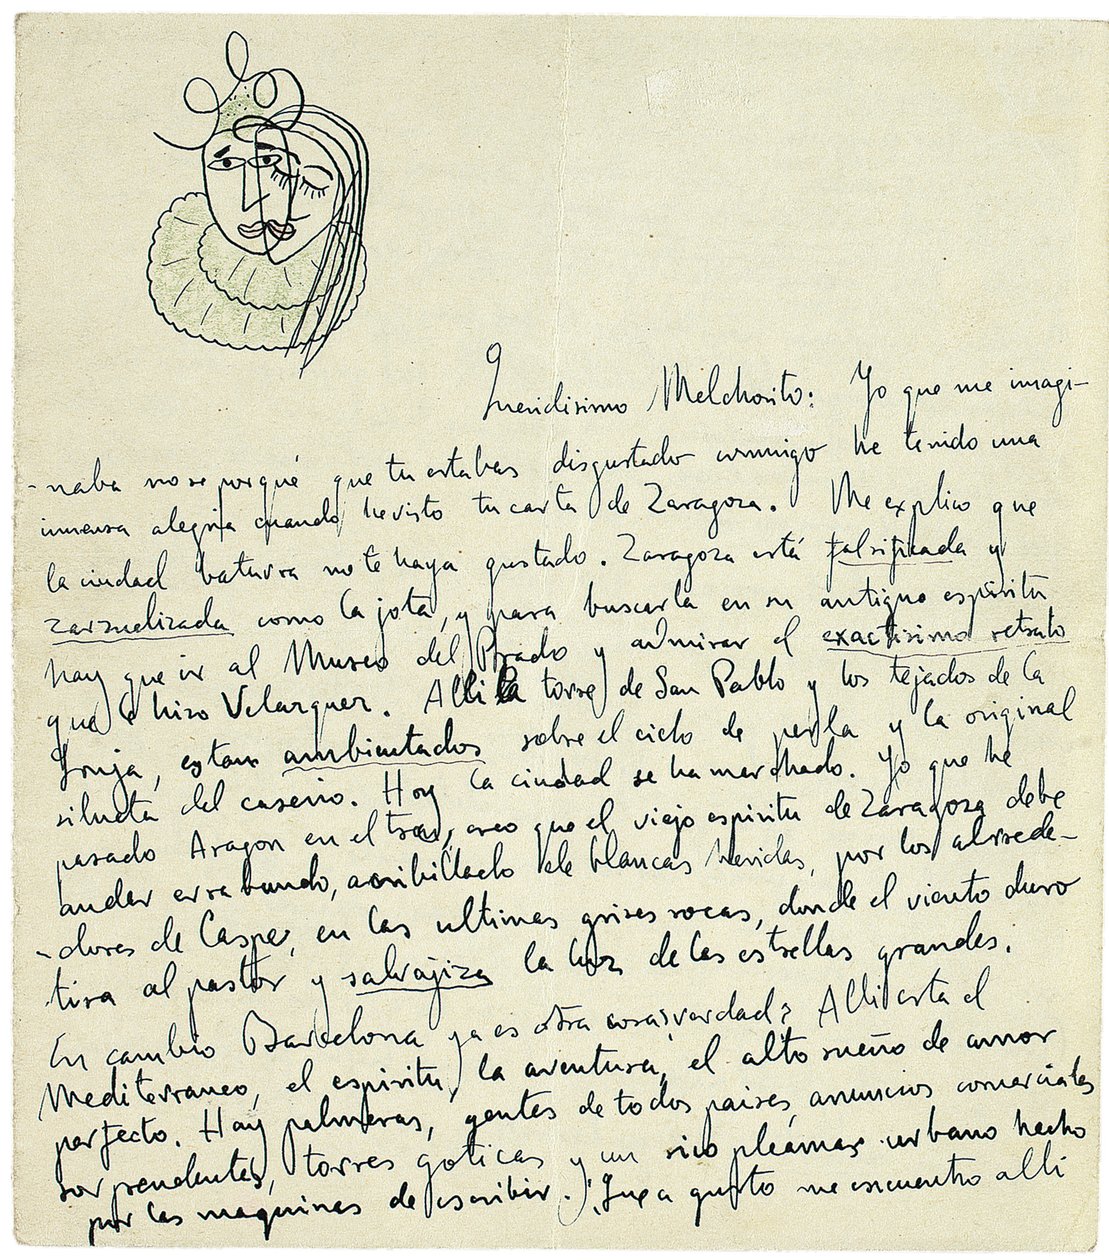 Queridisimo Melchorito: Yo que me imagi-
-naba no se porqué que tu estabas disgustado conmigo he tenido una
inmensa alegria cuando he visto tu carta de Zaragoza. Me explico que
la ciudad baturra no te haya gustado. Zaragoza está falsificada y
zarzuelizada como la jota, y para buscarla en su antiguo espiritu
hay que ir al Museo del Prado y admirar el exactisimo retrato
que le hizo Velazquez. Alli la torre de San Pablo y los tejados de la
Lonja, estan ambientados sobre el cielo de perla y la original
silueta del caserio. Hoy la ciudad se ha marchado. Yo que he
pasado Aragon en el tren, creo que el viejo espiritu de Zaragoza debe
andar errabundo, acribillado de blancas heridas, por los alrrede-
-dores de Caspe, en las ultimas grises rocas, donde el viento duro
tira al pastor y salvajiza la luz de las estrellas grandes.
En cambio Barcelona ya es otra cosa ¿verdad? Alli esta el
Mediterraneo, el espiritu, la aventura, el alto sueño de amor
perfecto. Hay palmeras, gentes de todos paises, anuncios comerciales
sorprendentes, torres goticas y un rico pleamar urbano hecho
por las maquinas de escribir. ¡Que a gusto me encuentro alli